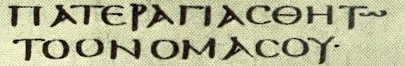 ΠΑΤΕΡΑΓΙΑϹΘΗΤω
ΤΟΟΝΟΜΑϹΟΥ·